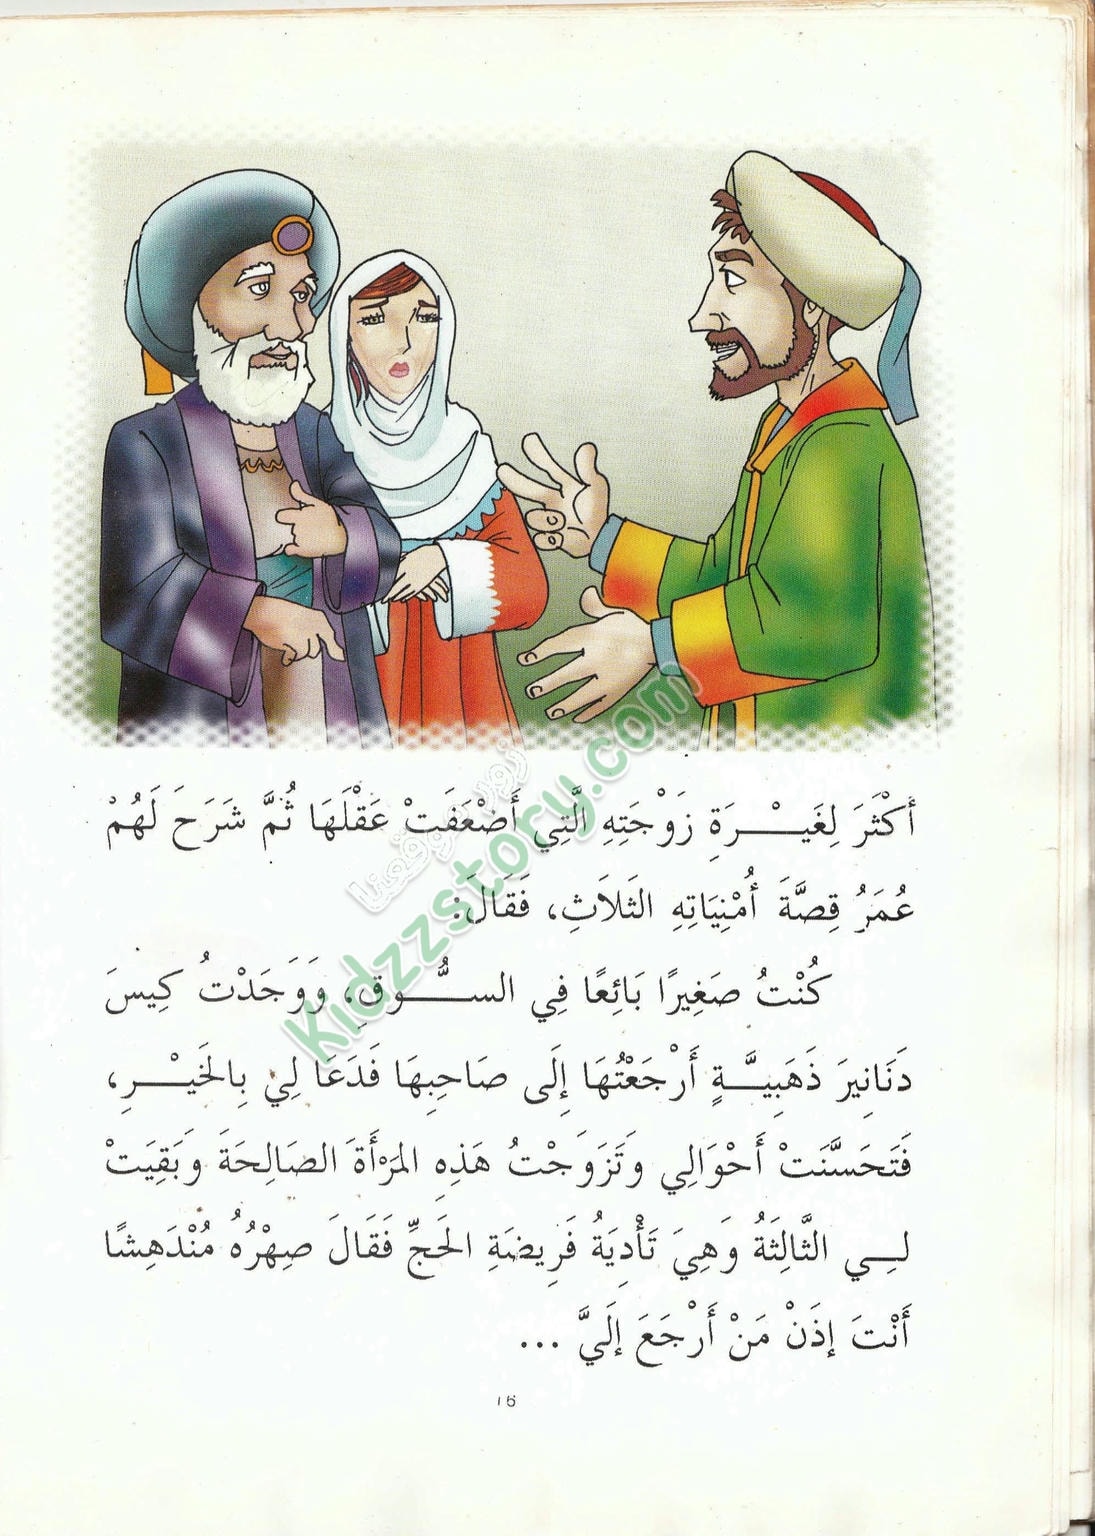 أَكْثَرَ لِغَيْـــرَةِ زَوْجَتِهِ الَّتِي أَضْعَفَتْ عَقْلَهَا ثُمَّ شَرَحَ لَهُمْ
عُمَرُ قِصَّةَ أُمْنِيَاتِهِ الثَلاَثِ، فَقَالَ:
كُنْتُ صَغِيرًا بَائِعًا فِي الســـُّوقِ، وَوَجَدْتُ كِيسَ
دَنَانِيرَ ذَهَبِيـــَّةٍ أَرْجَعْتُهَا إِلَى صَاحِبِهَا فَدَعَا لِي بِالخَيْـــرِ،
فَتَحَسَّنَتْ أَحْوَالِي وَتَزَوَجْتُ هَذِهِ المَرْأَةَ الصَالِحَةَ وَبَقِيَتْ
لـِـي الثَّالِثَةُ وَهِيَ تَأْدِيَةُ فَرِيضَةِ الحَجِّ فَقَالَ صِهْرُهُ مُنْدَهِشًا
أَنْتَ إِذَنْ مَنْ أَرْجَعَ إِلَيَّ ...
16
زوروا موقعنا
Kidzzstory.com